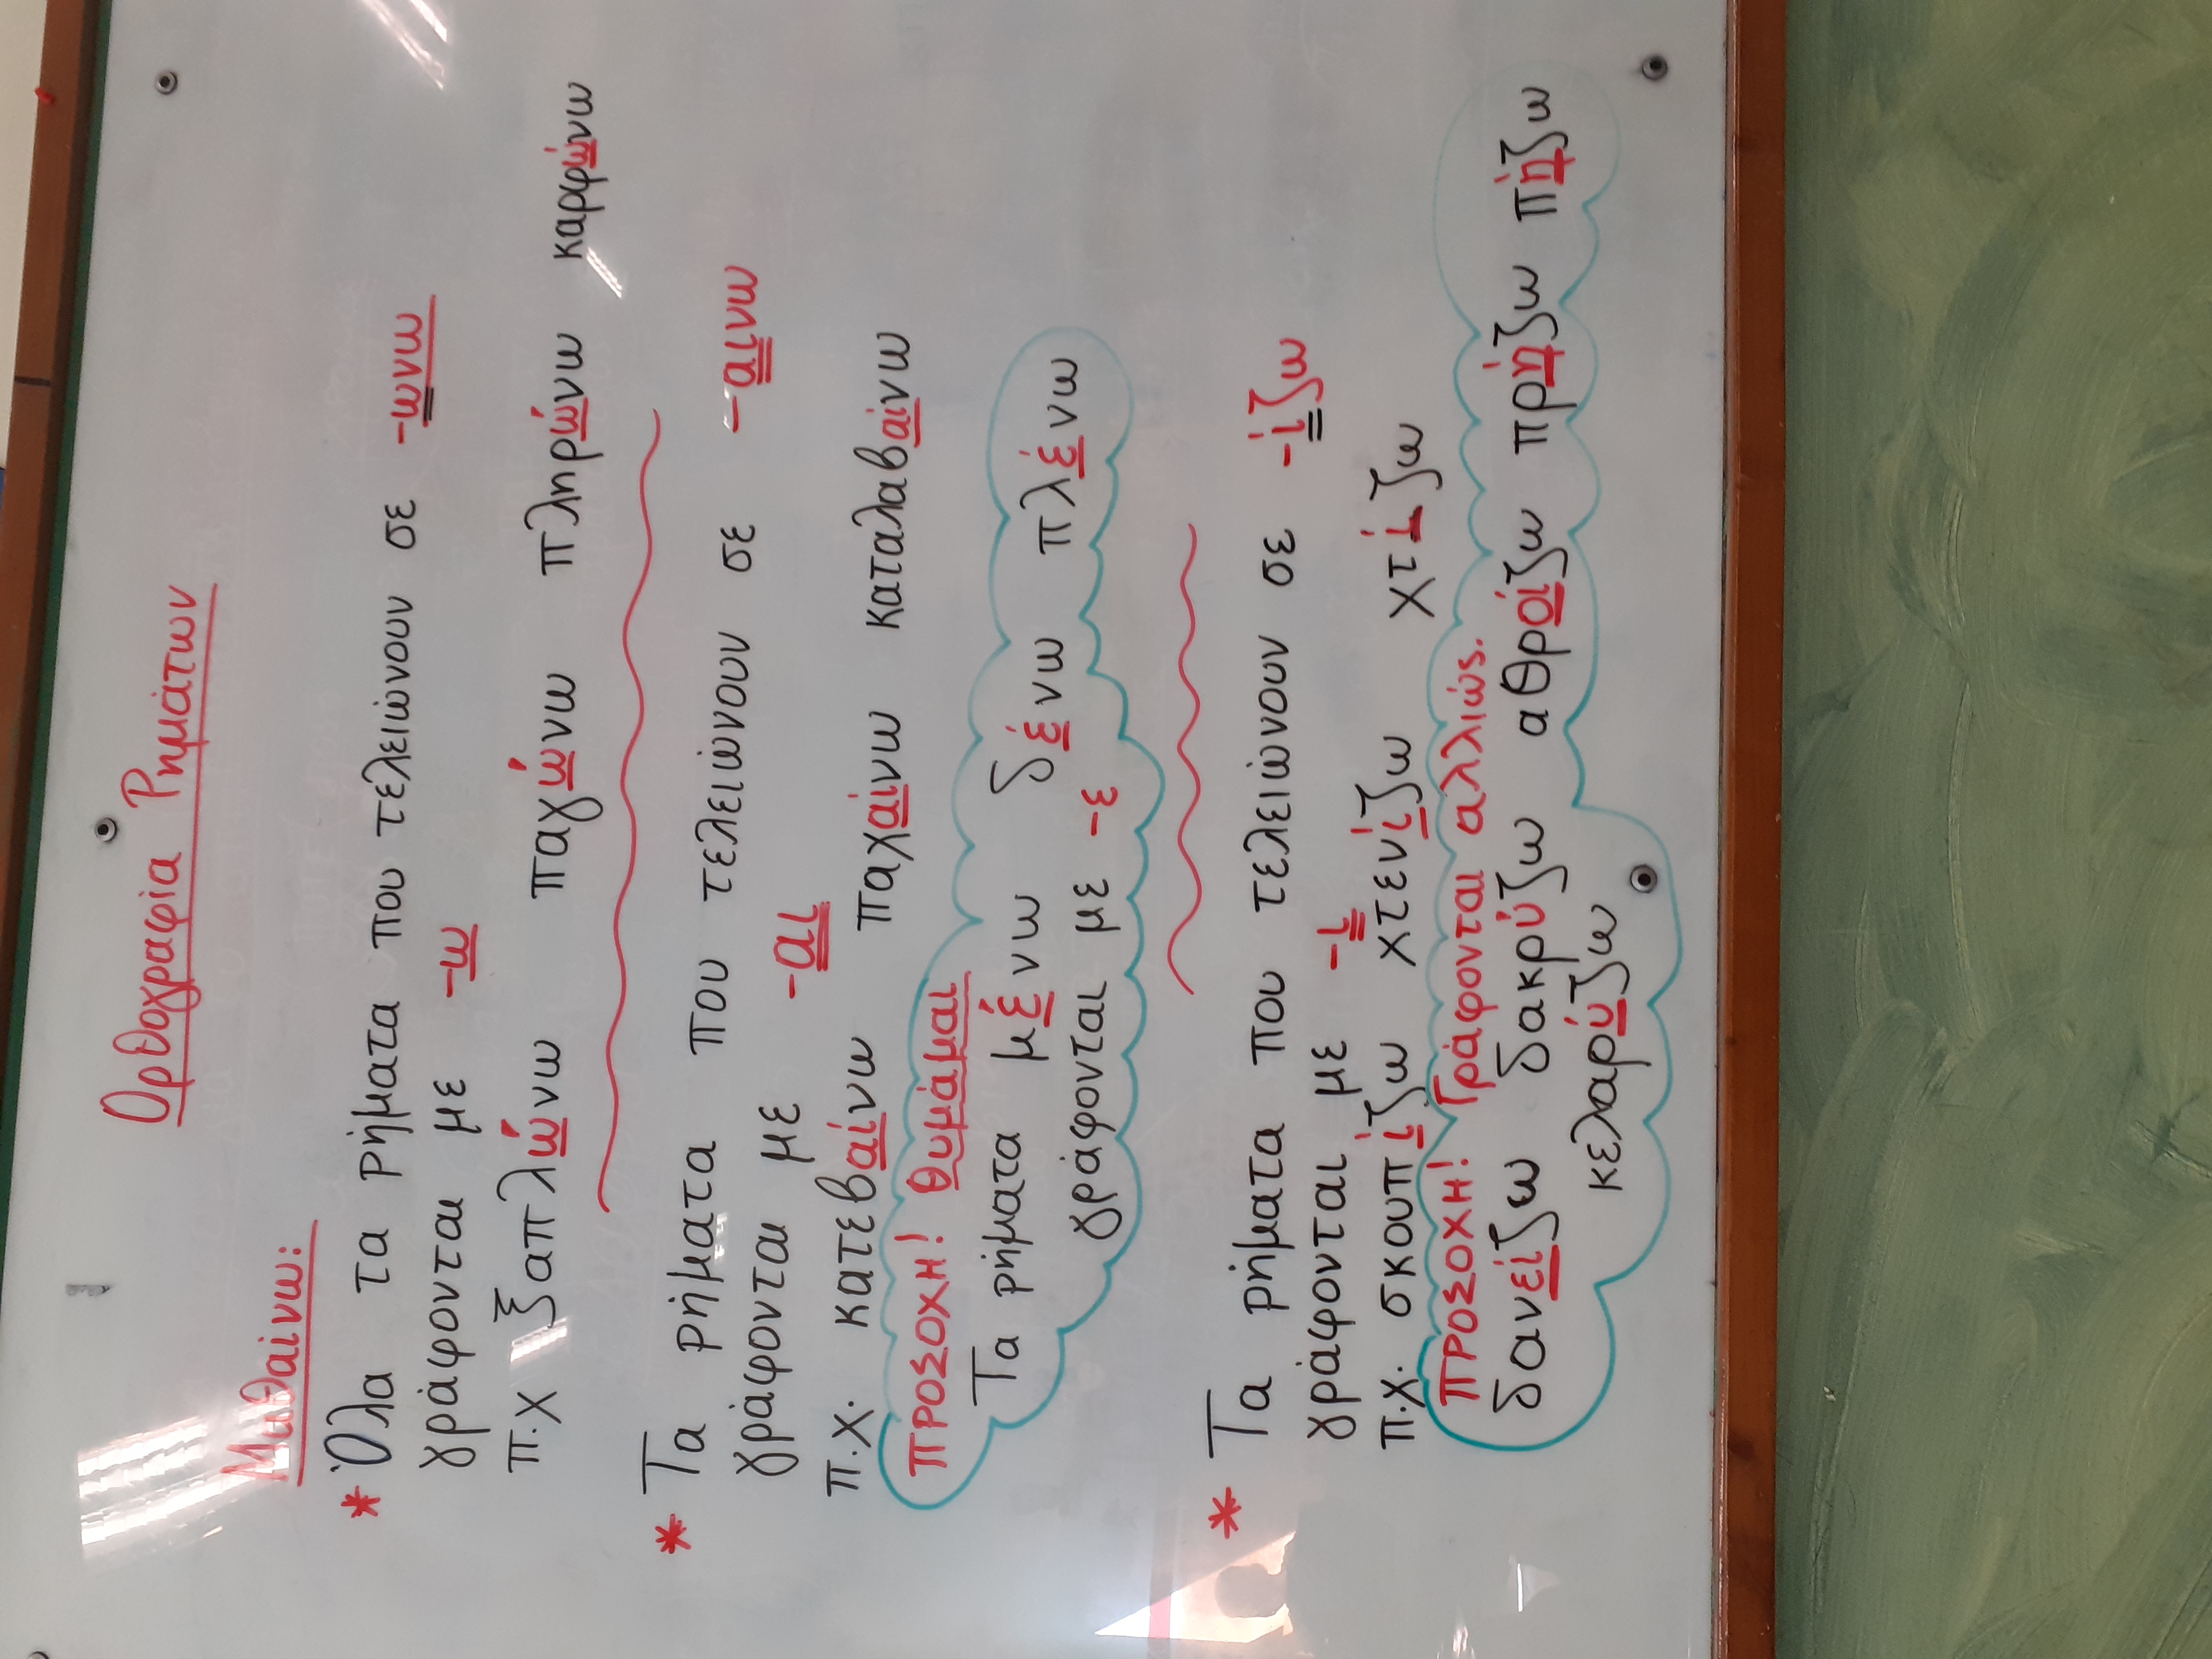 Ορθογραφία Ρημάτων
Μαθαίνω:
* Όλα τα ρήματα που τελειώνουν σε -ωνω
γράφονται με -ω
π.χ ξαπλώνω παγώνω πληρώνω καρφώνω
* Τα ρήματα που τελειώνουν σε -αινω
γράφονται με -αι
π.χ. κατεβαίνω παχαίνω καταλαβαίνω
ΠΡΟΣΟΧΗ! Θυμάμαι
Τα ρήματα μένω δένω πλένω
γράφονται με -ε
* Τα ρήματα που τελειώνουν σε -ίζω
γράφονται με -ι
π.χ. σκουπίζω χτενίζω χτίζω
ΠΡΟΣΟΧΗ! Γράφονται αλλιώς.
δανείζω δακρύζω αθροίζω πρήζω πήζω
κελαρύζω